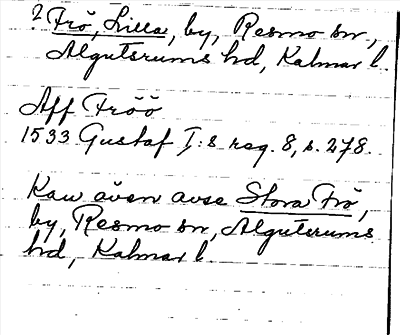 ? Frö, Lilla, by, Resmo sn,
Algutsrums hd, Kalmar l.
Aff Fröö
1533 Gustaf I:s reg. 8, s. 278.
Kan även avse Stora Frö,
by, Resmo sn, Algutsrums
hd, Kalmar l.